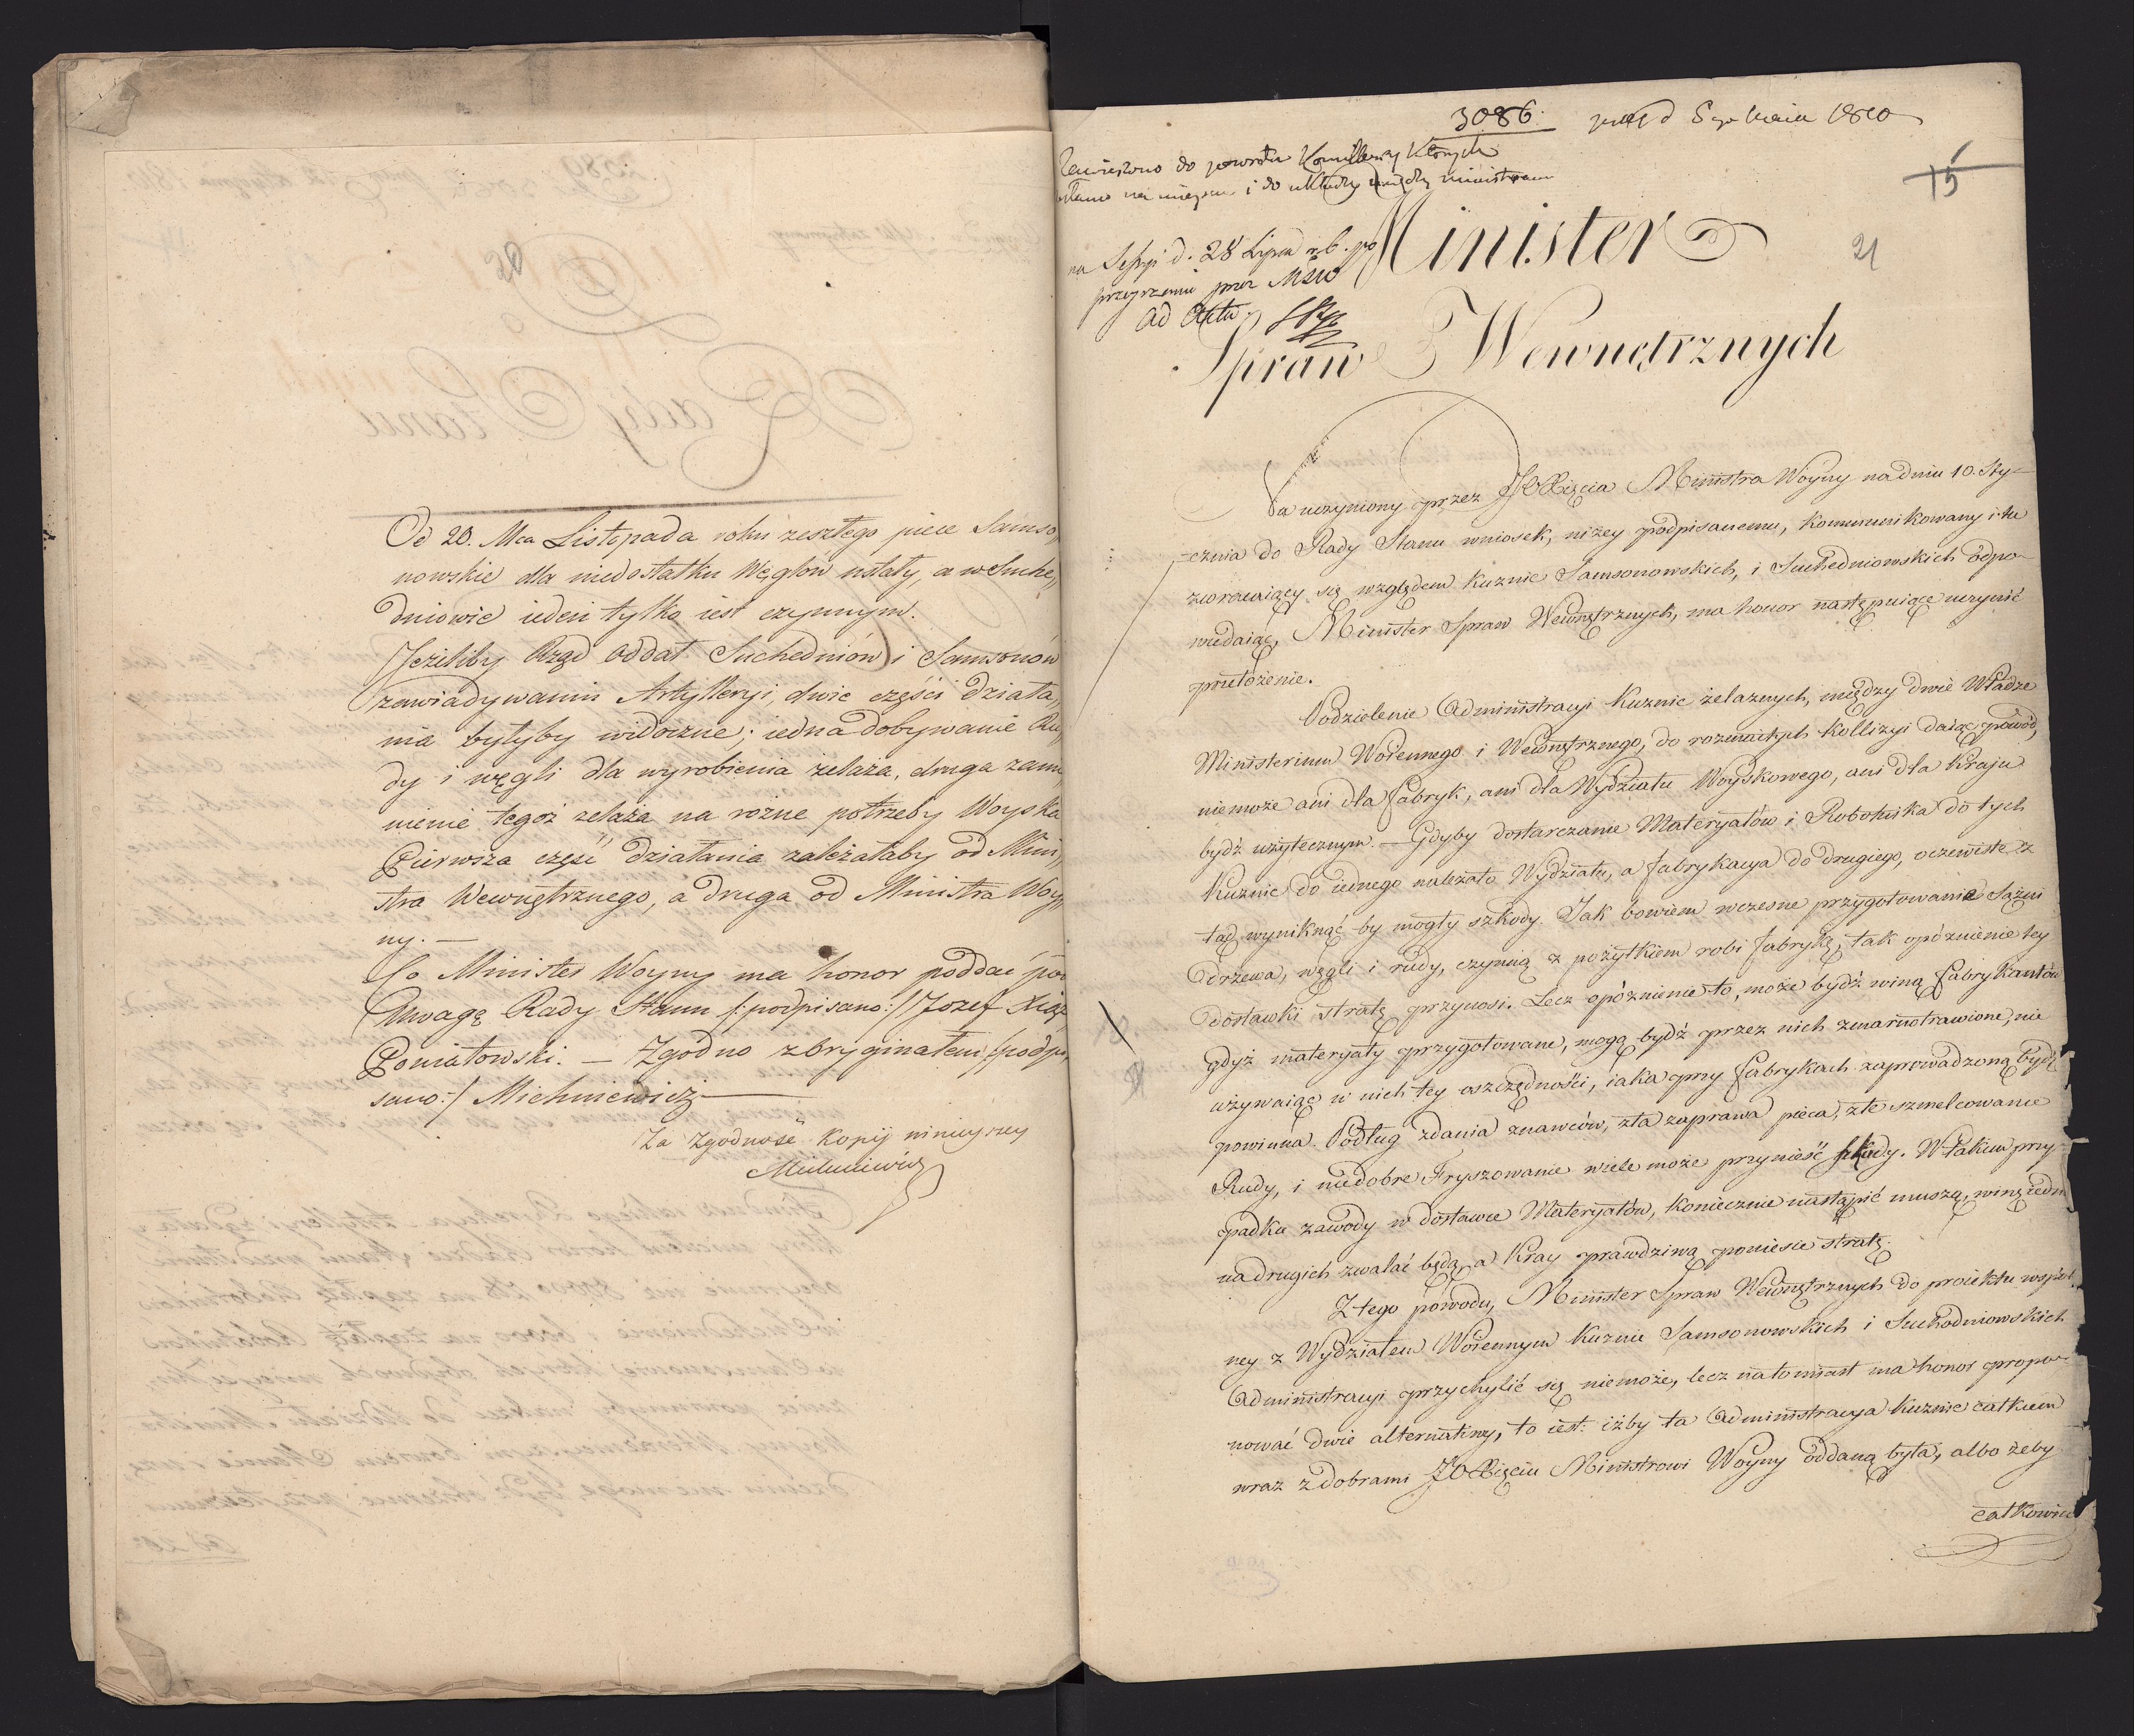 Od 20. Mca Listopada roku zeszłego piece Samso„
nowskie dla niedostatku Węglow ustały, a w Suche„
dniowie ieden tylko iest czynnym.
Jeżeliby Rząd oddał Suchedniów i Samsonów
zawiadywaniu Artylleryi, dwie części działa„
nia byłyby widoczne; iedna dobywanie Ru„
dy i węgli dla wyrobienia żelaza, druga zami„
nienie tegoż żelaza na rożne potrzeby Woyska
Pierwsza część działania zależałaby od Mini„
stra Wewnętrznego, a druga od Ministra Woy„
ny. —
Co Minister Woyny ma honor poddać pod
Uwagę Rady Stanu /:podpisano:/ Jozef Xiąże
Poniatowski. — Zgodno z oryginałem /:podpi„
sano:/ Michniewicz
Za Zgodność Kopij ninieyszey
Michniewicz
20
3086. 5go Maia 1810
15
21
Zawieszono do powrotu Kommissarzy których
na mieysce i do układu między ministrami
na Sessyi d. 28 Lipca rb. po
przeyrzeniu przez MSW
ad Acta.
Minister
Spraw Wewnętrznych
Na uczyniony przez JO Xięcia Ministra Woyny na dniu 10. Sty-
-cznia do Rady Stanu wniosek, niżey podpisanemu, kommunikowany i tu
zwracaiący się względem Kuznic Samsonowskich, i Suchedniowskich odpo-
wiedaiąc, Minister Spraw Wewnętrznych, ma honor następuiące uczynić
przełożenie.
Podzielenie Administracyi Kuznic żelaznych, między dwie Władze
Ministerium Woiennego i Wewnętrznego, do rozmaitych Kollizyi daiąc powód,
niemoże ani dla fabryk, ani dla Wydziału Woyskowego, ani dla Kraju
bydź użytecznym. — Gdyby dostarczanie Materyałów i Robotnika do tych
Kuznic do iednego należało Wydziału, a fabrykacya do drugiego, oczewiste z
tąd wyniknąć by mogły szkody. Jak bowiem wczesne przygotowanie Sążni
drzewa, węgli i rudy, czynną z pożytkiem robi fabrykę, tak opóznienie tey
dostawki stratę przynosi. Lecz opóznienie to, może bydź winą fabrykantów
gdyż materyały przygotowane, mogą bydź przez nich zmarnotrawione, nie
używaiąc w nich tey oszczędności, iaka przy fabrykach zaprowadzoną bydź
powinna. Podług zdania znawców, zła zaprawa pieca, złe szmelcowanie
Rudy, i niedobre Fryszowanie wiele może przynieść szkody. W takim przy-
padku zawody w dostawie Materyałów, koniecznie nastąpić muszą, winę iedni
na drugich zwalać będą, a Kray prawdziwą poniesie stratę.
Z tego powodu, Minister Spraw Wewnętrznych do proiektu wspól-
ney z Wydziałem Woiennym Kuznic Samsonowskich i Suchodniowskich
Administracyi przychylić się niemoże, lecz natomiast ma honor propo-
nować dwie alternatiwy, to iest: iżby ta Administracya Kuznic całkiem
wraz z dobrami JO Xięciu Ministrowi Woyny oddaną była, albo żeby
całkowicie